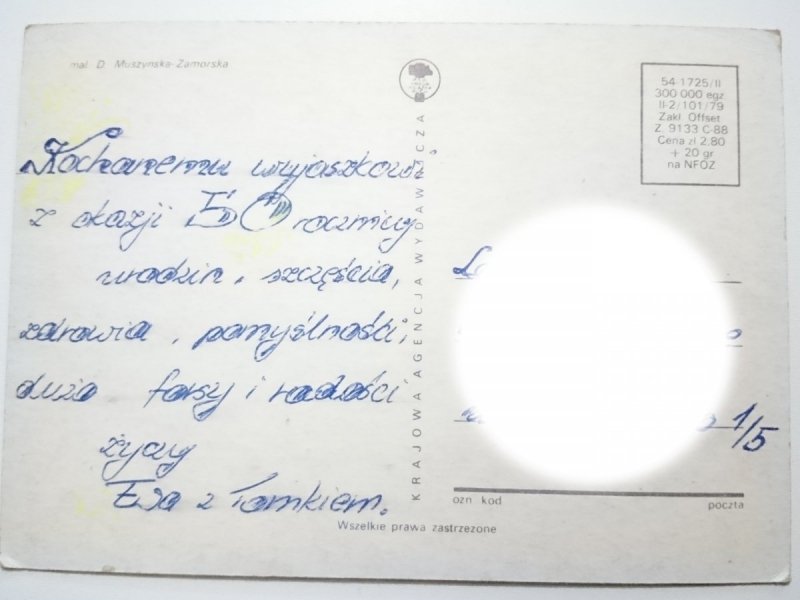 mal. D. Muszyńska-Zamorska
Kochanemu wujaszkowi,
z okazji 50 rocznicy
urodzin, szczęścia,
zdrowia, pomyślności,
dużo forsy i radości
życzy
Ewa z Tomkiem.
KRAJOWA AGENCJA WYDAWNICZA
54 1725/II
300 000 egz
II-2/101/79
Zakł. Offset
Z. 9133 C-88
Cena zł 2,80
+ 20 gr
na NFOZ
1/5
ozn kod
poczta
Wszelkie prawa zastrzeżone